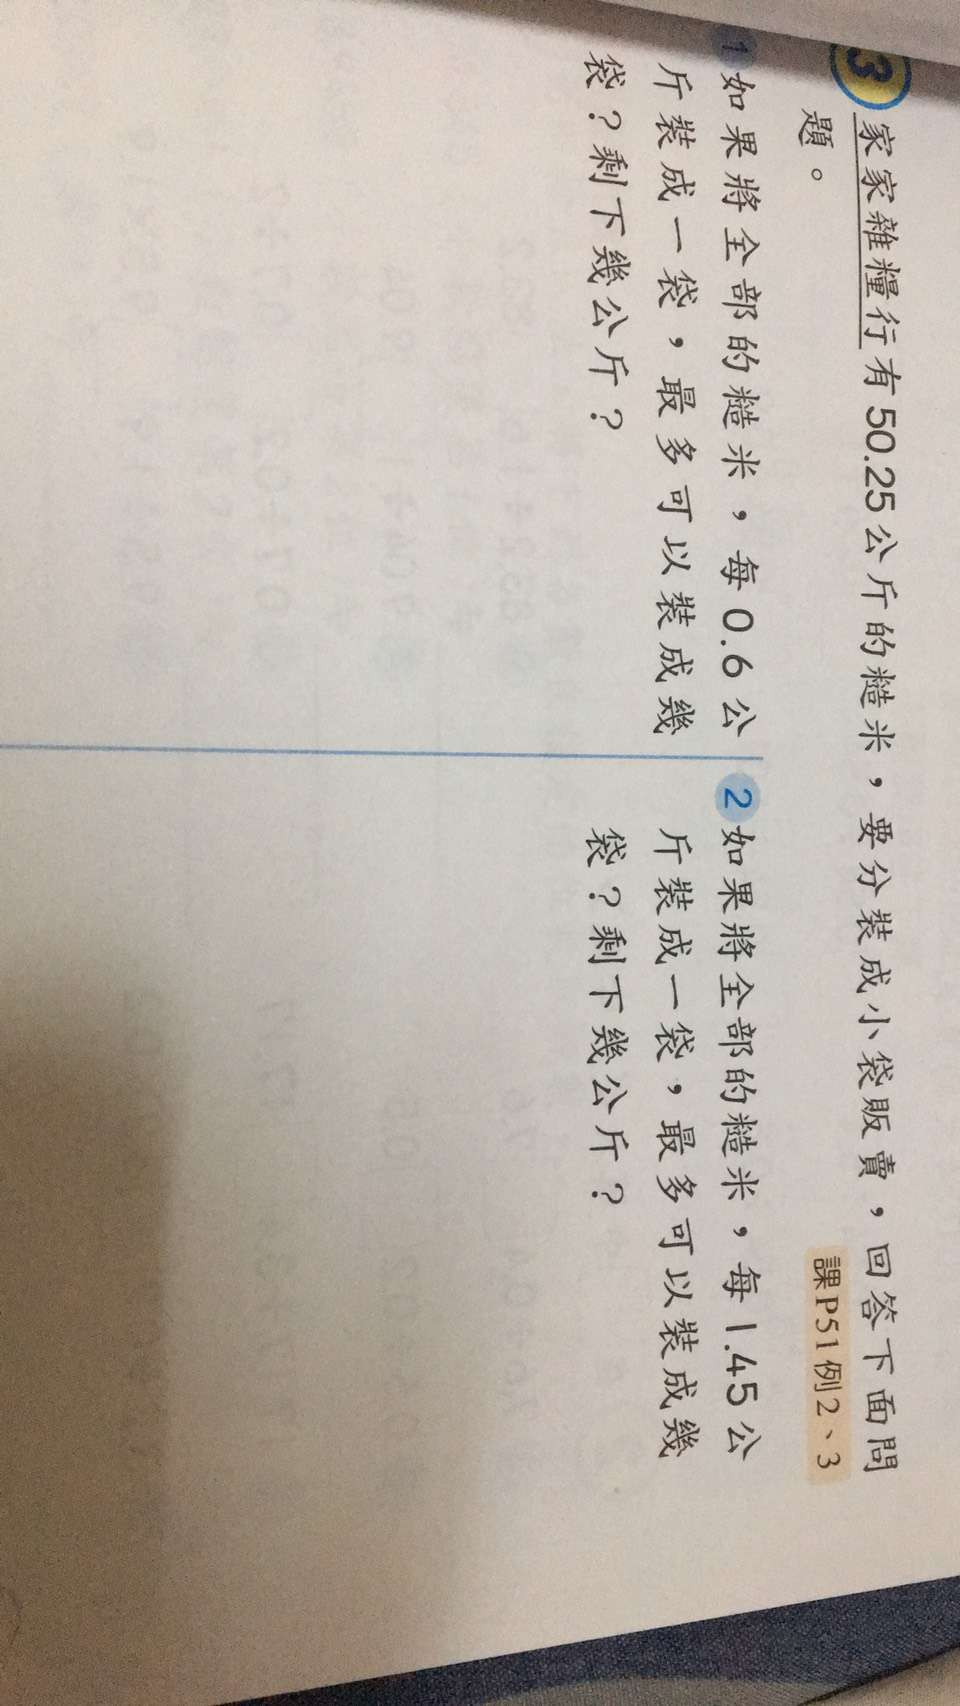 3
家家雜糧行有50.25公斤的糙米，要分裝成小袋販賣，回答下面問
題。
課P51例2、3
1 如果將全部的糙米，每0.6公
斤裝成一袋，最多可以裝成幾
袋？剩下幾公斤？
2 如果將全部的糙米，每1.45公
斤裝成一袋，最多可以裝成幾
袋？剩下幾公斤？